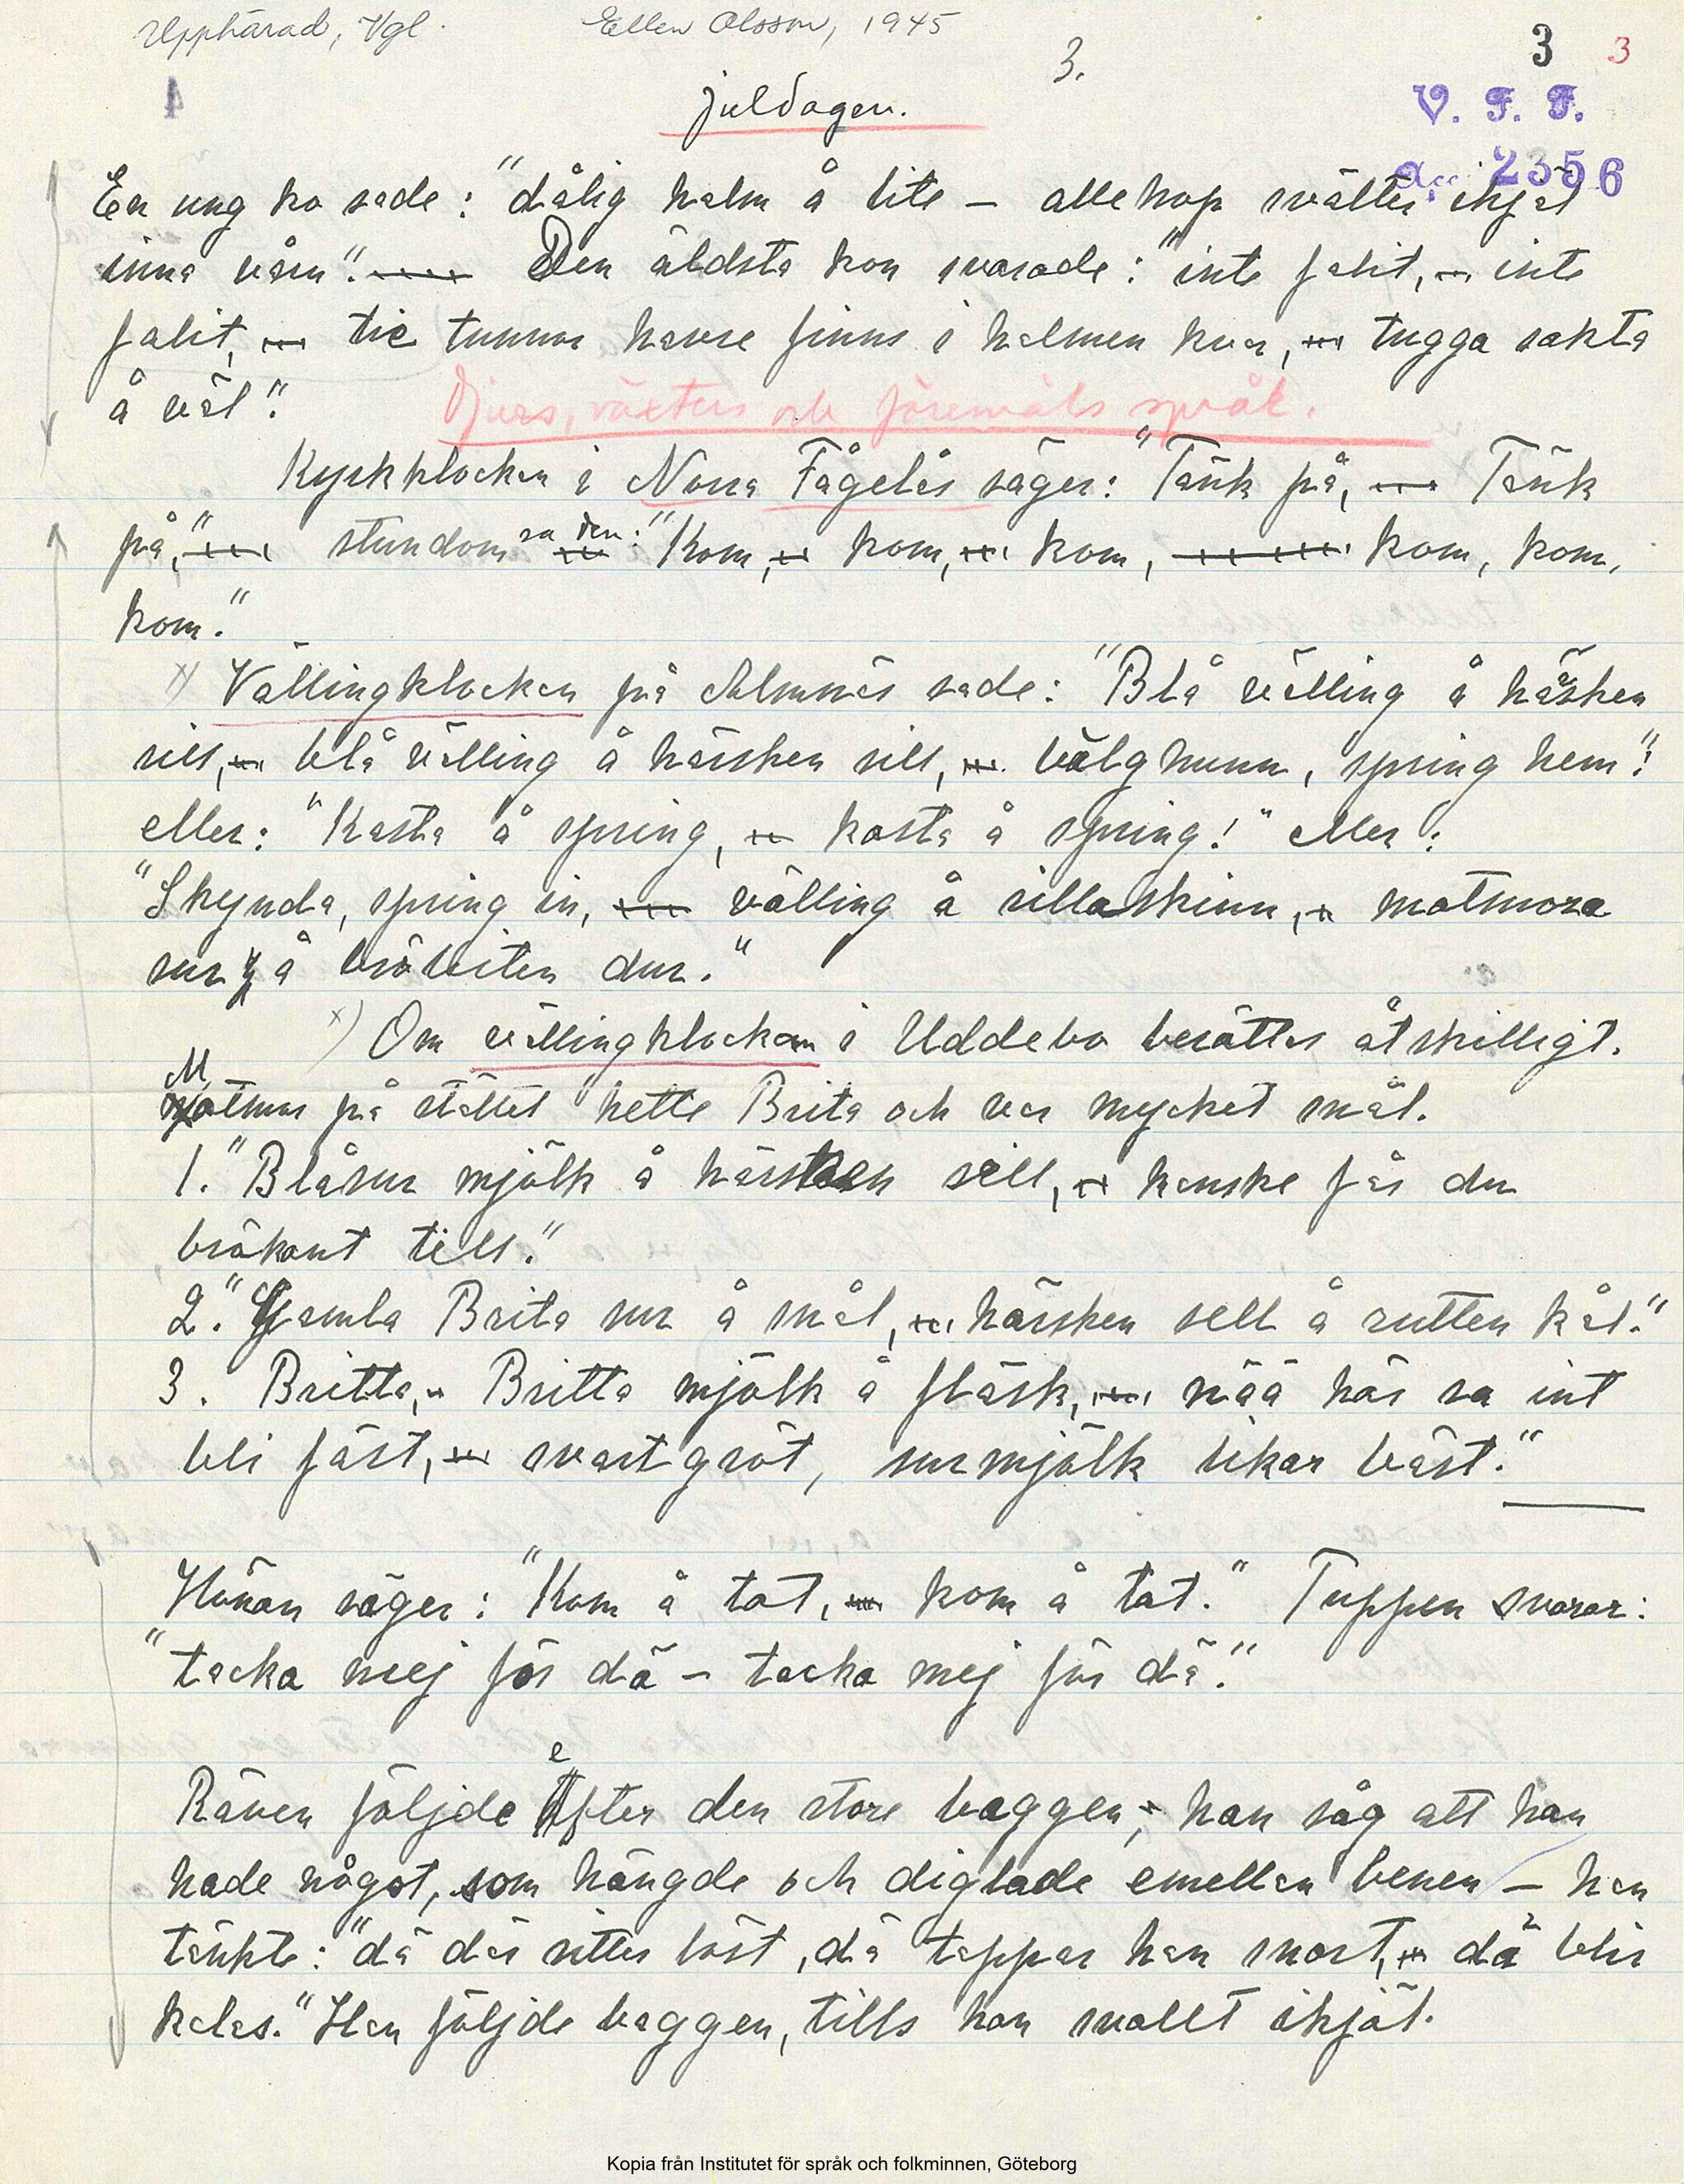 Upphärad, Vgl.
Ellen Olsson, 1945
3 3
3.
juldagen.
V. F. F.
acc 2356
En ung ko sade: "dålig halm å lite – allehop svälter ihjäl
inna vårn". Den äldsta kon svarade: "inte falit, inte
falit, tie tunnor havre finns i halmen kvar, tugga sakta
å väl".
Djurs, växters och föremåls språk.
Kyrkklockan i Norra Fågelås säger: "Tänk på, Tänk
på," stundom sa den: "Kom, kom, kom, kom, kom,
kom."
x) Vällingklockan på Almnäs sade: "Blå välling å härsken
sill, blå välling å härsken sill, bälghunn, spring hem"!
eller: "Kasta å spring, kasta å spring!" eller:
"Skynda, spring in, välling å sillaskinn, matmora
sur å bröbiten dur."
x) Om vällingklockan i Uddebo berättas åtskilligt.
Matmor på stället hette Brita och var mycket snål.
1. "Blåsur mjölk å härsken sill, kanske får du
brökant till."
2. "Gamla Brita sur å snål, härsken sill å rutten kål."
3. Britta, Britta mjölk å fläsk, nää här sa int
bli fäst, svart gröt, surmjölk likar bäst."
Hönan säger: "Kom å tat, kom å tat." Tuppen svarar:
"tacka mej för dä – tacka mej för dä."
Räven följde efter den store baggen; han såg att han
hade något, som hängde och diglade emellan benen – han
tänkte: "dä där sitter löst, dä tappar han snart, då blir
kalas." Han följde baggen, tills han svallt ihjäl.
Kopia från Institutet för språk och folkminnen, Göteborg